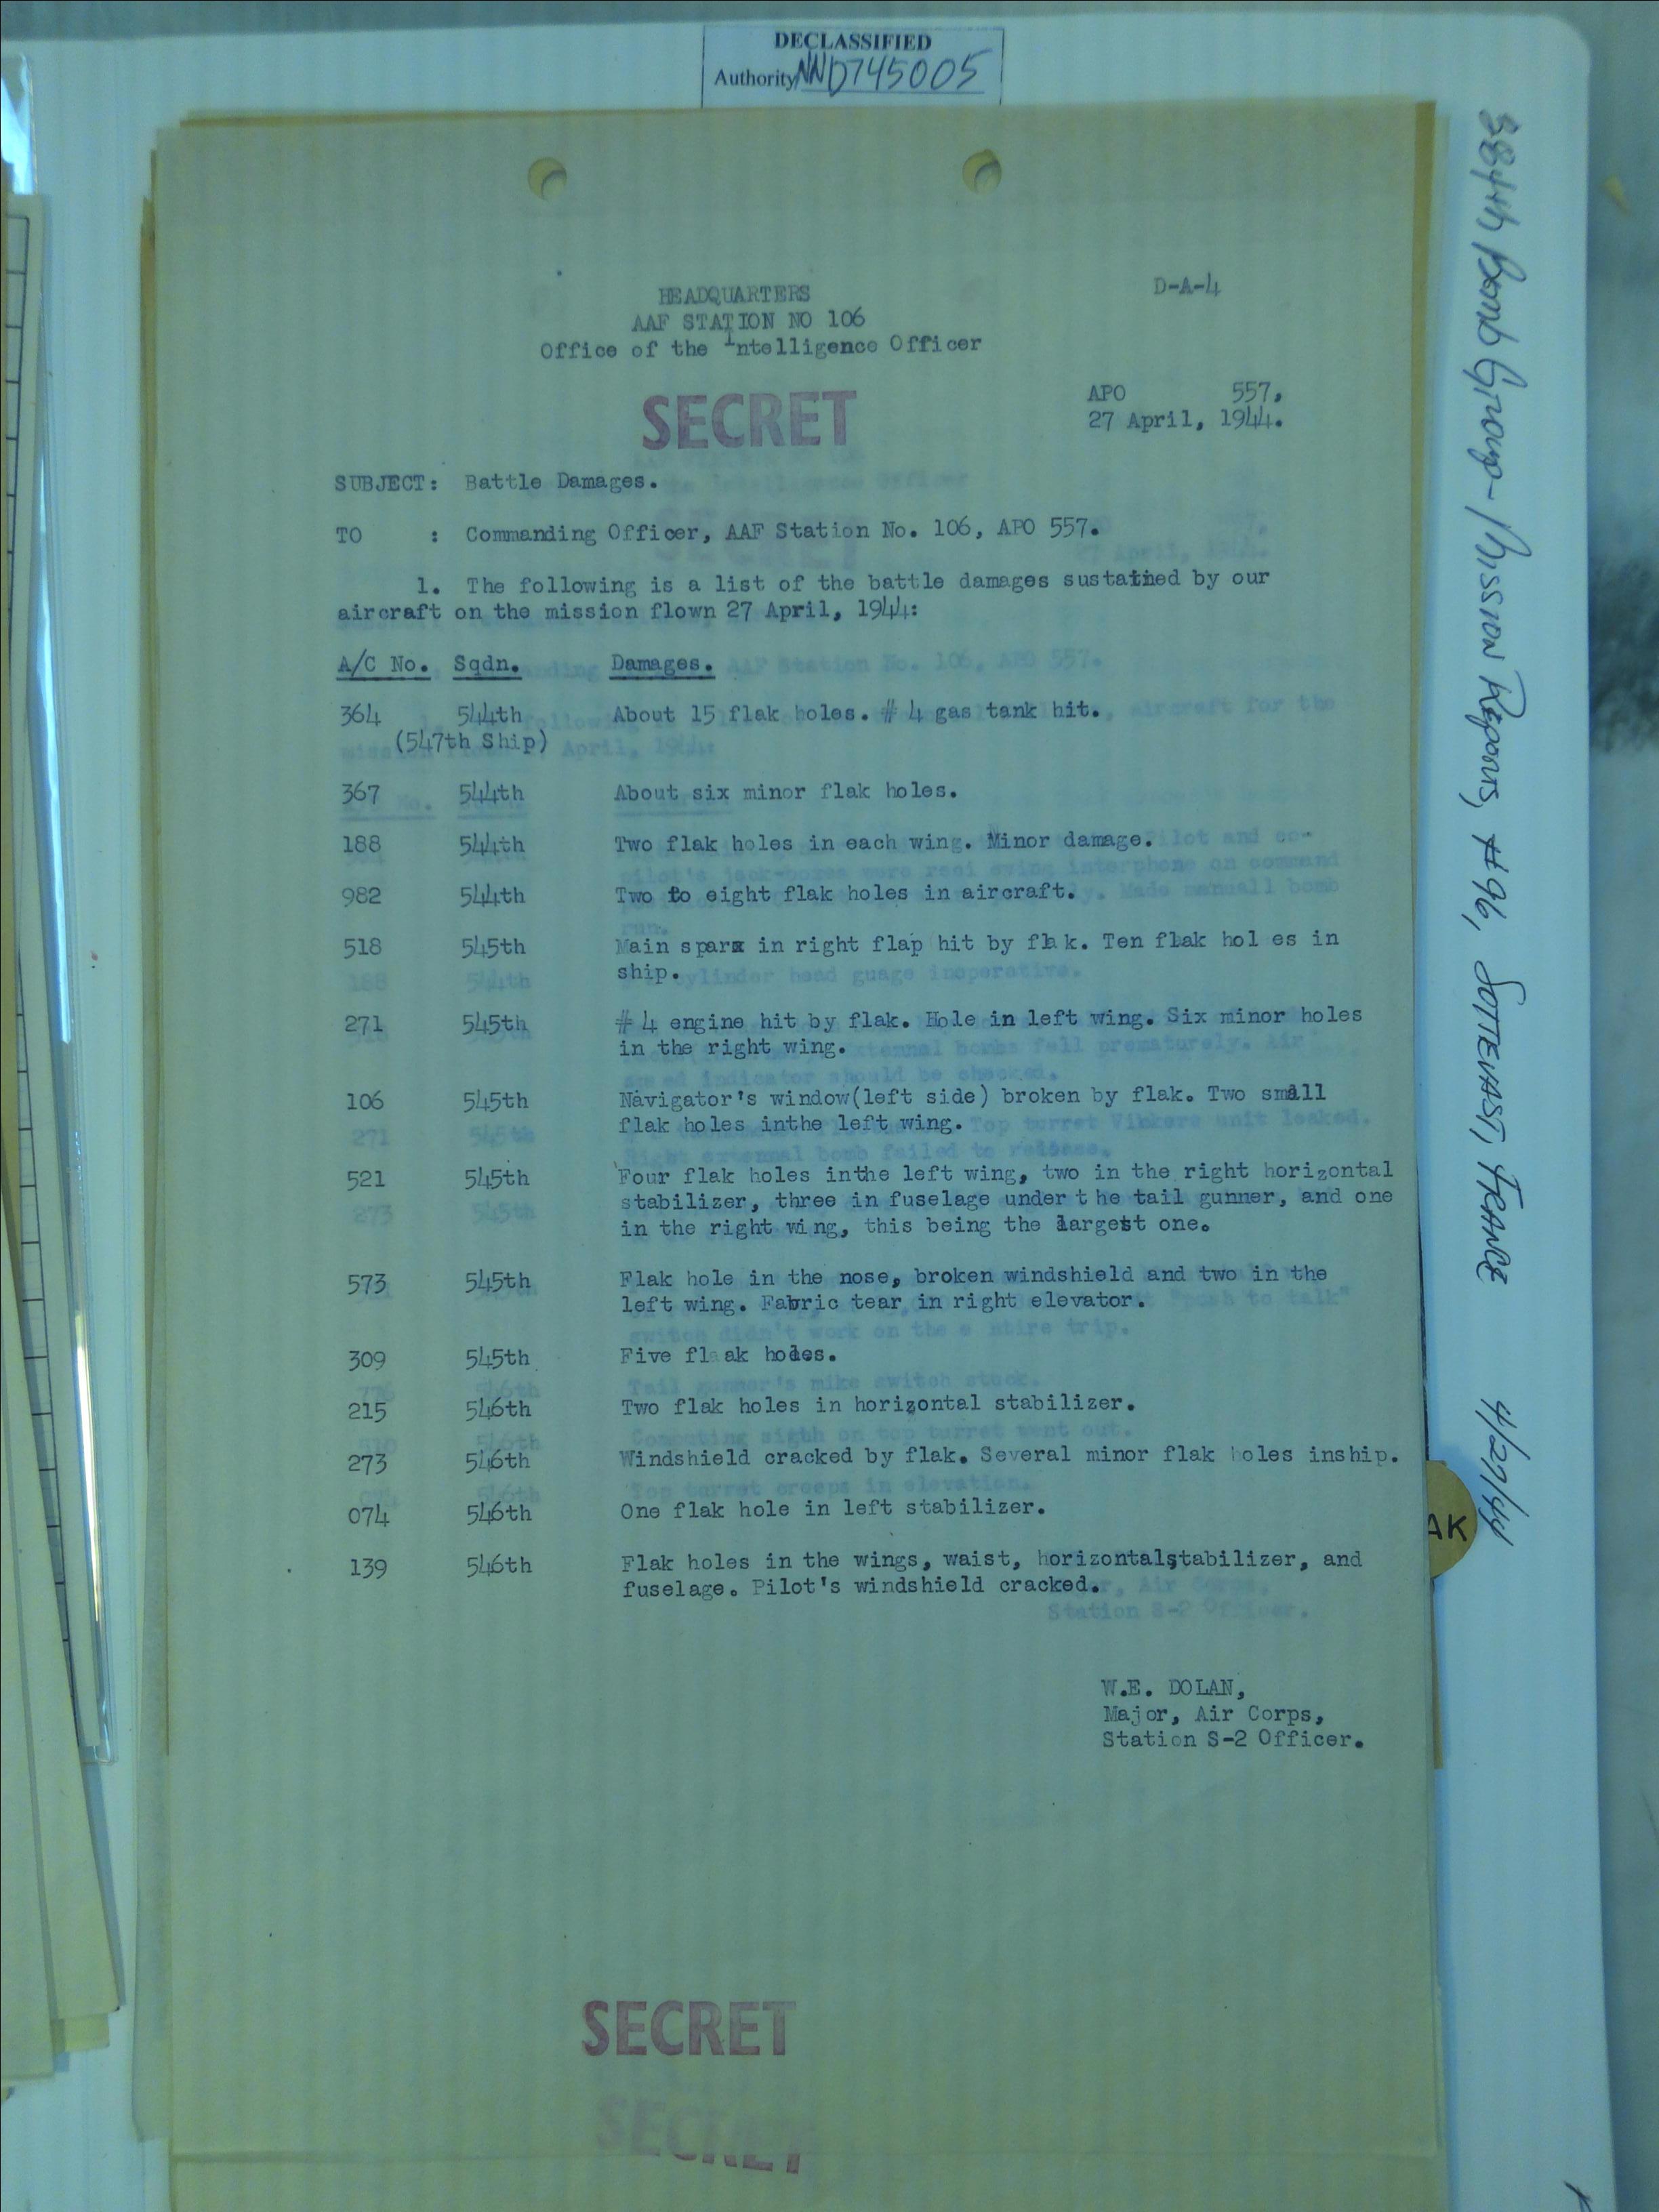 DECLASSIFIED
Authority NND745005
HEADQUARTERS
D-A-4
AAF STATION NO 106
Office of the Intelligence Officer
SECRET
APO 557,
27 April, 1944.
SUBJECT: Battle Damages.
TO : Commanding Officer, AAF Station No. 106, APO 557.
1. The following is a list of the battle damages sustained by our
aircraft on the mission flown 27 April, 1944:
A/C No. Sqdn. Damages.
364 544th About 15 flak holes. # 4 gas tank hit.
(547th Ship)
367 544th About six minor flak holes.
188 544th Two flak holes in each wing. Minor damage.
982 544th Two to eight flak holes in aircraft.
518 545th Main sparx in right flap hit by flak. Ten flak hol es in
ship.
271 545th # 4 engine hit by flak. Hole in left wing. Six minor holes
in the right wing.
106 545th Navigator's window(left side) broken by flak. Two small
flak holes inthe left wing.
521 545th Four flak holes inthe left wing, two in the right horizontal
stabilizer, three in fuselage under t he tail gunner, and one
in the right wing, this being the largest one.
573 545th Flak hole in the nose, broken windshield and two in the
left wing. Fabric tear in right elevator.
309 545th Five fl ak holes.
215 546th Two flak holes in horizontal stabilizer.
273 546th Windshield cracked by flak. Several minor flak holes inship.
074 546th One flak hole in left stabilizer.
139 546th Flak holes in the wings, waist, horizontalstabilizer, and
fuselage. Pilot's windshield cracked.
W.E. DOLAN,
Major, Air Corps,
Station S-2 Officer.
SECRET
SECRET
384th Bomb Group - Mission Reports, #96, SOTTEVAST, FRANCE 4/27/44
AK